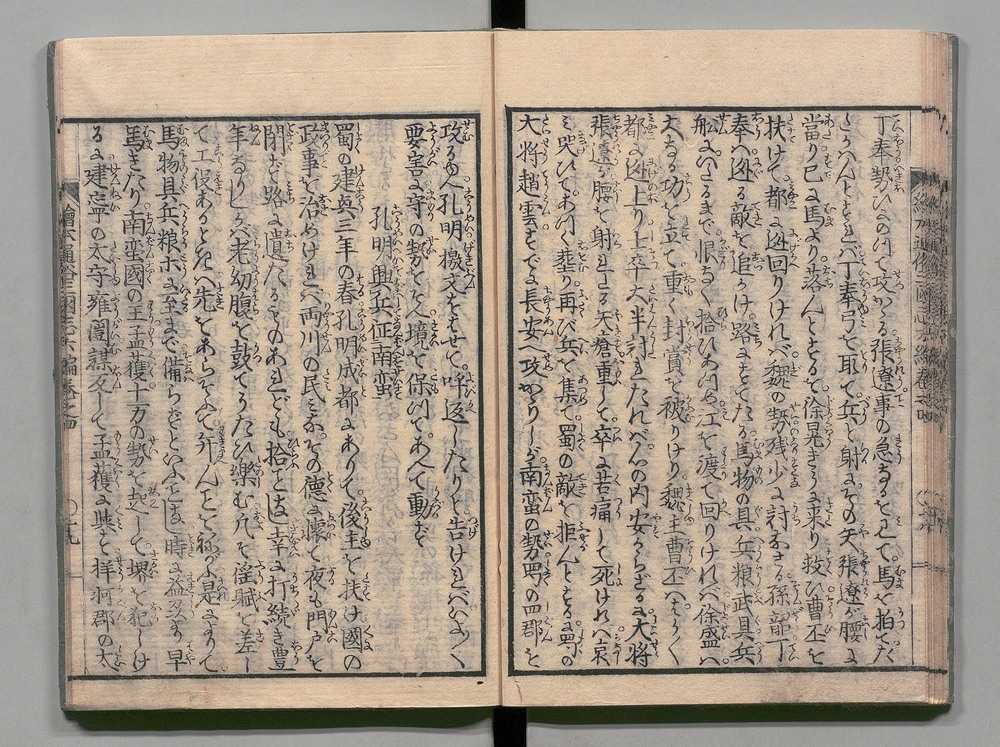 丁奉勢ひ付て攻かゝる張遼事の急なるを見て馬を拍てた
ゝかはんとすれバ丁奉弓を取て兵と射るその矢張遼が腰に
當り已に馬より落んとするを徐晃きたり来り救ひ曹丕を
扶けて都に迯回りけれバ魏の勢残少に討なさる孫韶丁
奉ハ迯る敵を追かけ路にすてたる馬物の具兵粮武具兵
舩にいたるまで限なく拾ひあつめ江を渡て回りけれバ徐盛ハ
大なる功を立て重く封賞を被りけり魏主曹丕ハ
都に迯上り士卒大半討れたれバ心の内安からざるに大將
張遼が腰を射れたる矢瘡重して卒に苦痛して死けれバ哀
み哭ひてあつく葬り再び兵を集て蜀の敵を拒んとす蜀の
大将趙雲すでに長安へ攻かゝりしが南蛮の勢蜀の四郡を
攻るゆへ孔明檄文をはせて呼返したりと告けれバ
要害に守の勢をとゞめ境を保つてあへて動ず
孔明興兵征南蛮
蜀の建興三年の春孔明成都にありて後主を扶け國の
政事を治めけれバ両川の民みなその德に懐て夜も門戸を
閉ず路に遺たるものあれども拾とらず幸に打続き豊
年なりしかバ老幼腹を鼓てうたひ樂む凡そ淫賦を差し
て工役あるときハ先をあらそひて弁んことを
馬物具兵粮ホに至まで備らずといふことなし時に益州より早
馬きたり南蛮國の王孟獲十万の勢を起して堺を犯しけ
るに建寧の太守雍闓謀叛して孟獲に與し牂牁郡の太
繪本通俗三國志六編巻之四